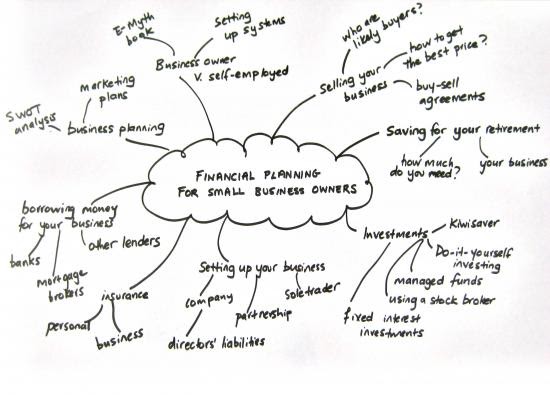 FINANCIAL PLANNING
FOR SMALL BUSINESS OWNERS
E-Myth
book
Setting
up systems
Business owner
V. self-employed
who are
likely buyers?
how to get
the best price?
Selling your
business
buy-sell
agreements
Saving for your retirement
how much
do you need?
your business
Investments
Kiwisaver
Do-it-yourself
investing
managed funds
using a stock broker
fixed interest
investments
Setting up your business
company
partnership
soletrader
directors' liabilities
insurance
personal
business
borrowing money
for your business
banks
mortgage
brokers
other lenders
business planning
marketing
plans
SWOT
analysis